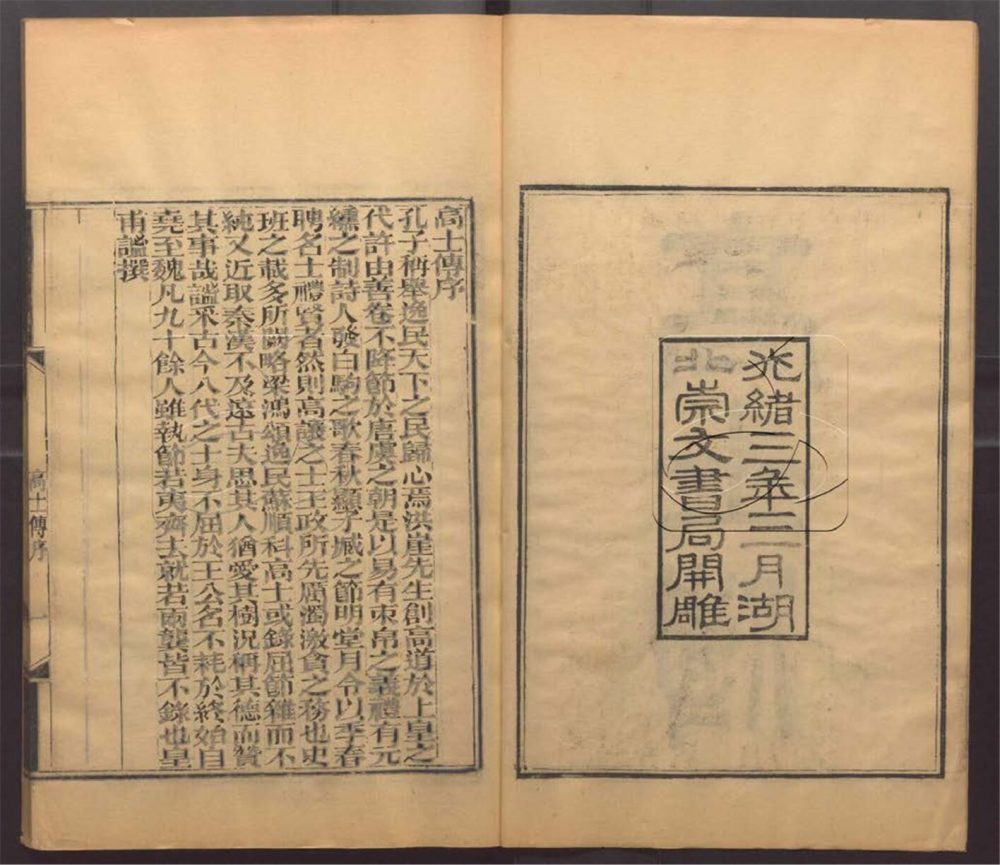 光緒三年三月湖
北崇文書局開雕
高士傳序
孔子稱舉逸民天下之民歸心焉洪崖先生創高道於上皇之
代許由善卷不降節於唐虞之朝是以易有束帛之義禮有元
纁之制詩人發白駒之歌春秋顯子臧之節明堂月令以季春
聘名士禮賢者然則高讓之士王政所先厲濁激貪之務也史
班之載多所闕略梁鴻頌逸民蘇順科高士或錄屈節雜而不
純又近取秦漢不及遠古夫思其人猶愛其樹況稱其德而贊
其事哉謐采古今八代之士身不屈於王公名不耗於終始自
堯至魏凡九十餘人雖執節若夷齊去就若兩龔皆不錄也皇
甫謐撰
高士傳序
一